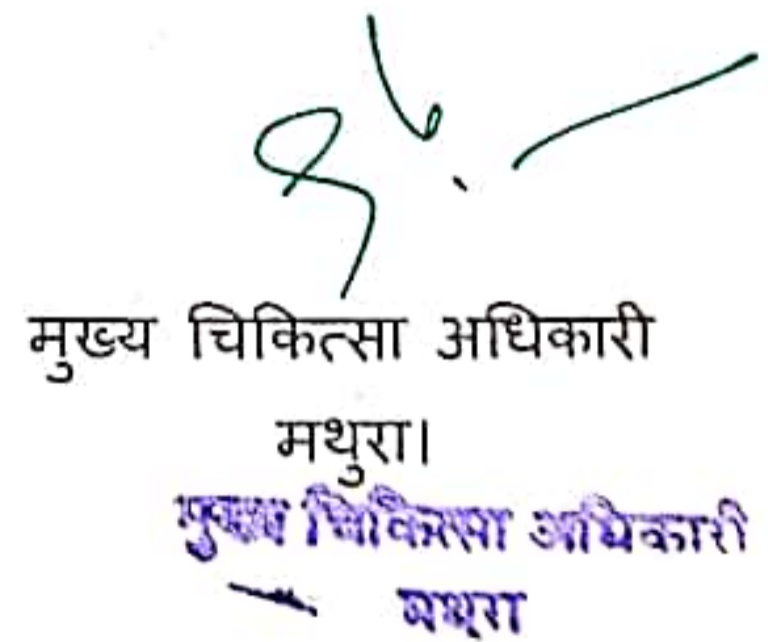 मुख्य चिकित्सा अधिकारी
मथुरा।
मुख्य चिकित्सा अधिकारी
मथुरा